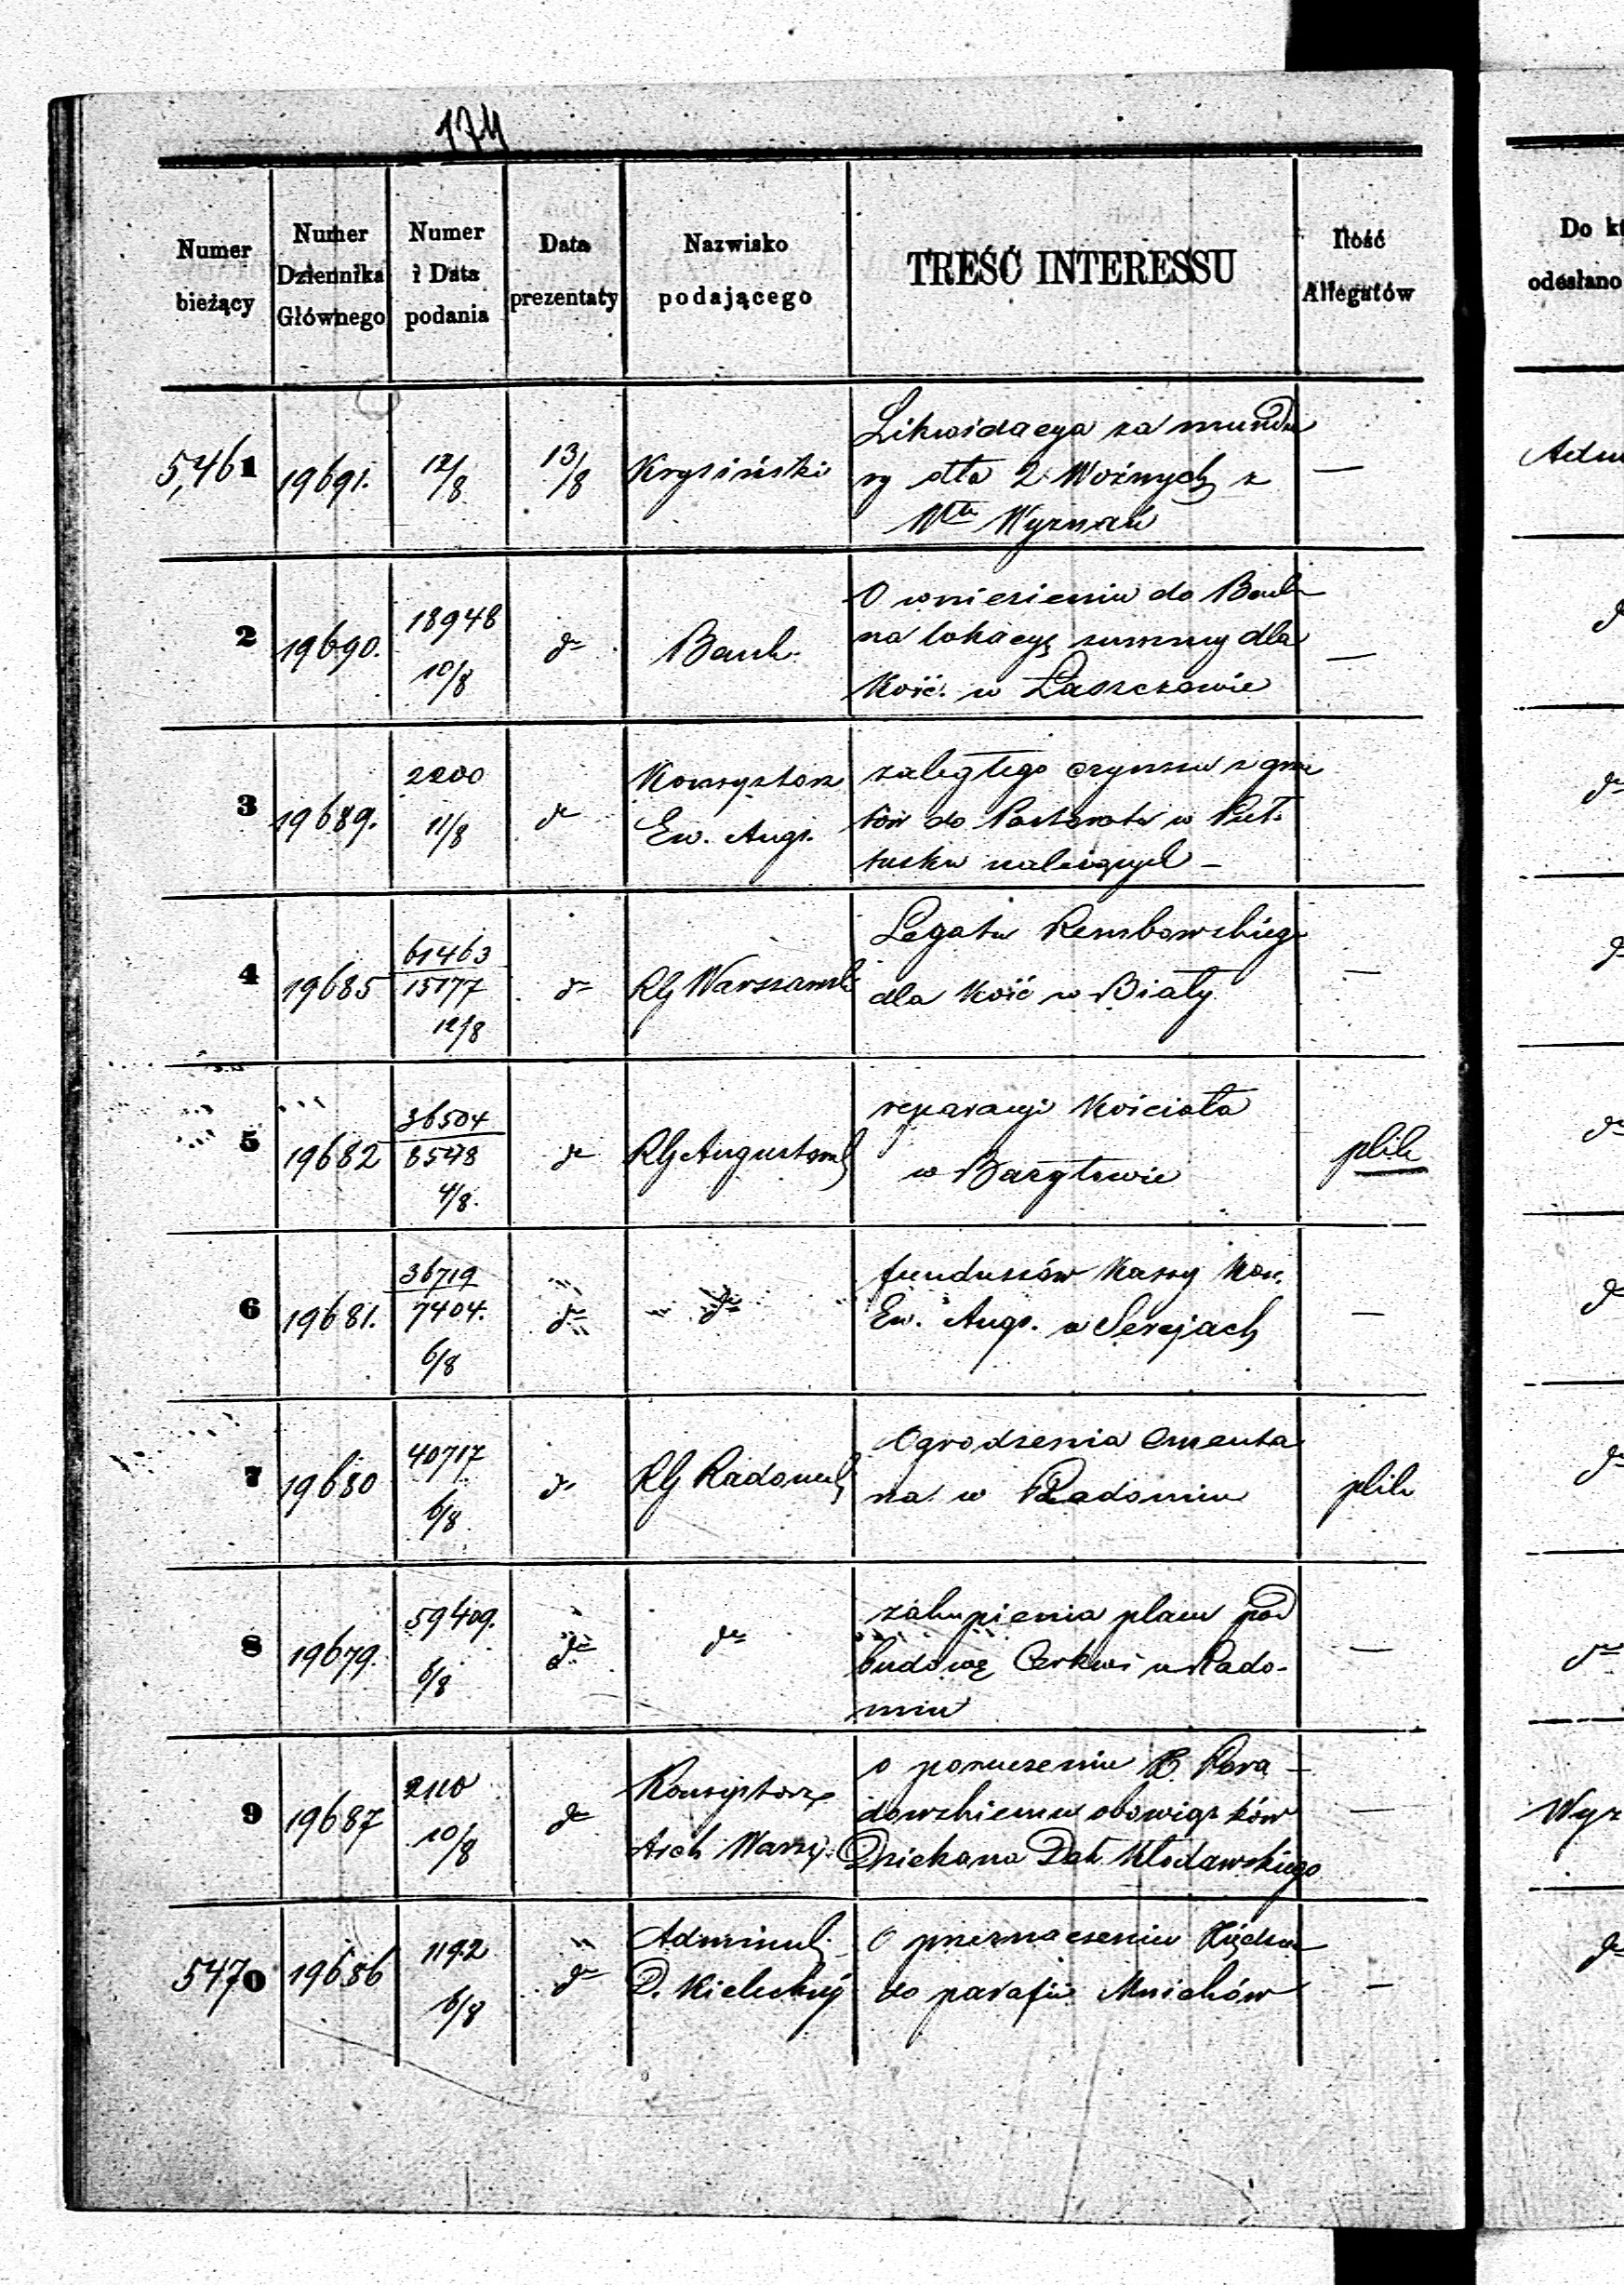 174
Numer bieżący
Numer Dziennika Głównego
Numer i Data podania
Data prezentaty
Nazwisko podającego
TREŚĆ INTERESSU
Ilość Allegatów
Do
odesłano
5,461
19691.
12/8
13/8
Krysiński
Likwidacya za mundu
ry dla 2 Woźnych z
Wyznań
—
2
19690.
18948
10/8
do
Bank
O wniesieniu do Banku
na lokacyę summy dla
Kość. w Łaszczowie
—
3
19689.
2200
11/8
do
Konsystorz
Ew. Augs.
zaległego czynszu z grun
tów do Pastoratu w Puł-
tusku należących —
do
4
19685
61463
15177
12/8
do
RG Warszawsk
Legatu Rembowskiego
dla Kość w Biały
—
5
19682
36504
8548
4/8.
do
RG Augustowsk
reparacyi Kościoła
w Bargłowie
plik
do
6
19681.
36719
7404.
6/8
do
do
funduszów Kassy Kos.
Ew. Augs. w Serejach
—
7
19680
40717
6/8
do
RG Radomsk
Ogrodzenia Cmenta
na w Radomiu
plik
8
19679.
59409.
6/8
do
do
zakupienia placu pod
budowę Cerkwi w Rado-
miu
—
do
9
19687
2110
10/8
do
Konsystorz
Arch Warsz.
o poruczeniu X.
dowskiemu obowiązków
Dziekana Dek. Kłodawskiego
—
Wyz
5470
19686
1192
6/8
do
D. Kieleckiej
O przeznaczeniu Księdza
do parafii Mnichów
—
do